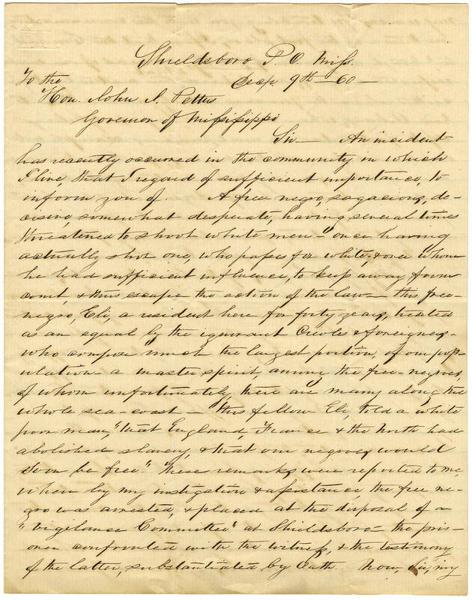 Shieldsboro P.O. Miss.
To the Decr 9th — 60 —
Hon. John J. Pettus
Governor of Mississippi
Sir — An incident
has recently occurred in the community in which
I live, that I regard of sufficient importance, to
inform you of A free negro, sagacious, de-
cisive, somewhat desperate, having several times
threatened to shoot white men — once having
actually shot one, who passes for white & over whom
he had sufficient influence, to keep away from
court, & thus escape the action of the law — this free
negro, Eli, a resident here for forty years, treated
as an equal by the ignorant Creoles & foreigners —
who compose much the largest portion, of our pop-
ulation — a master spirit, among the free-negroes,
of whom unfortunately, there are many along the
whole sea-coast — This fellow Eli, told a white
poor man, "that England, France & the North had
abolished slavery, & that our negroes would
soon be free" These remarks were reported to me,
when by my instigation & assistance the free ne-
gro was arrested, & placed at the disposal of a
"vigilance Committee" at Shieldsboro — the pris-
oner confronted with the witness, & the testimony
of the latter, substantiated by Oath — Now, Sir, my